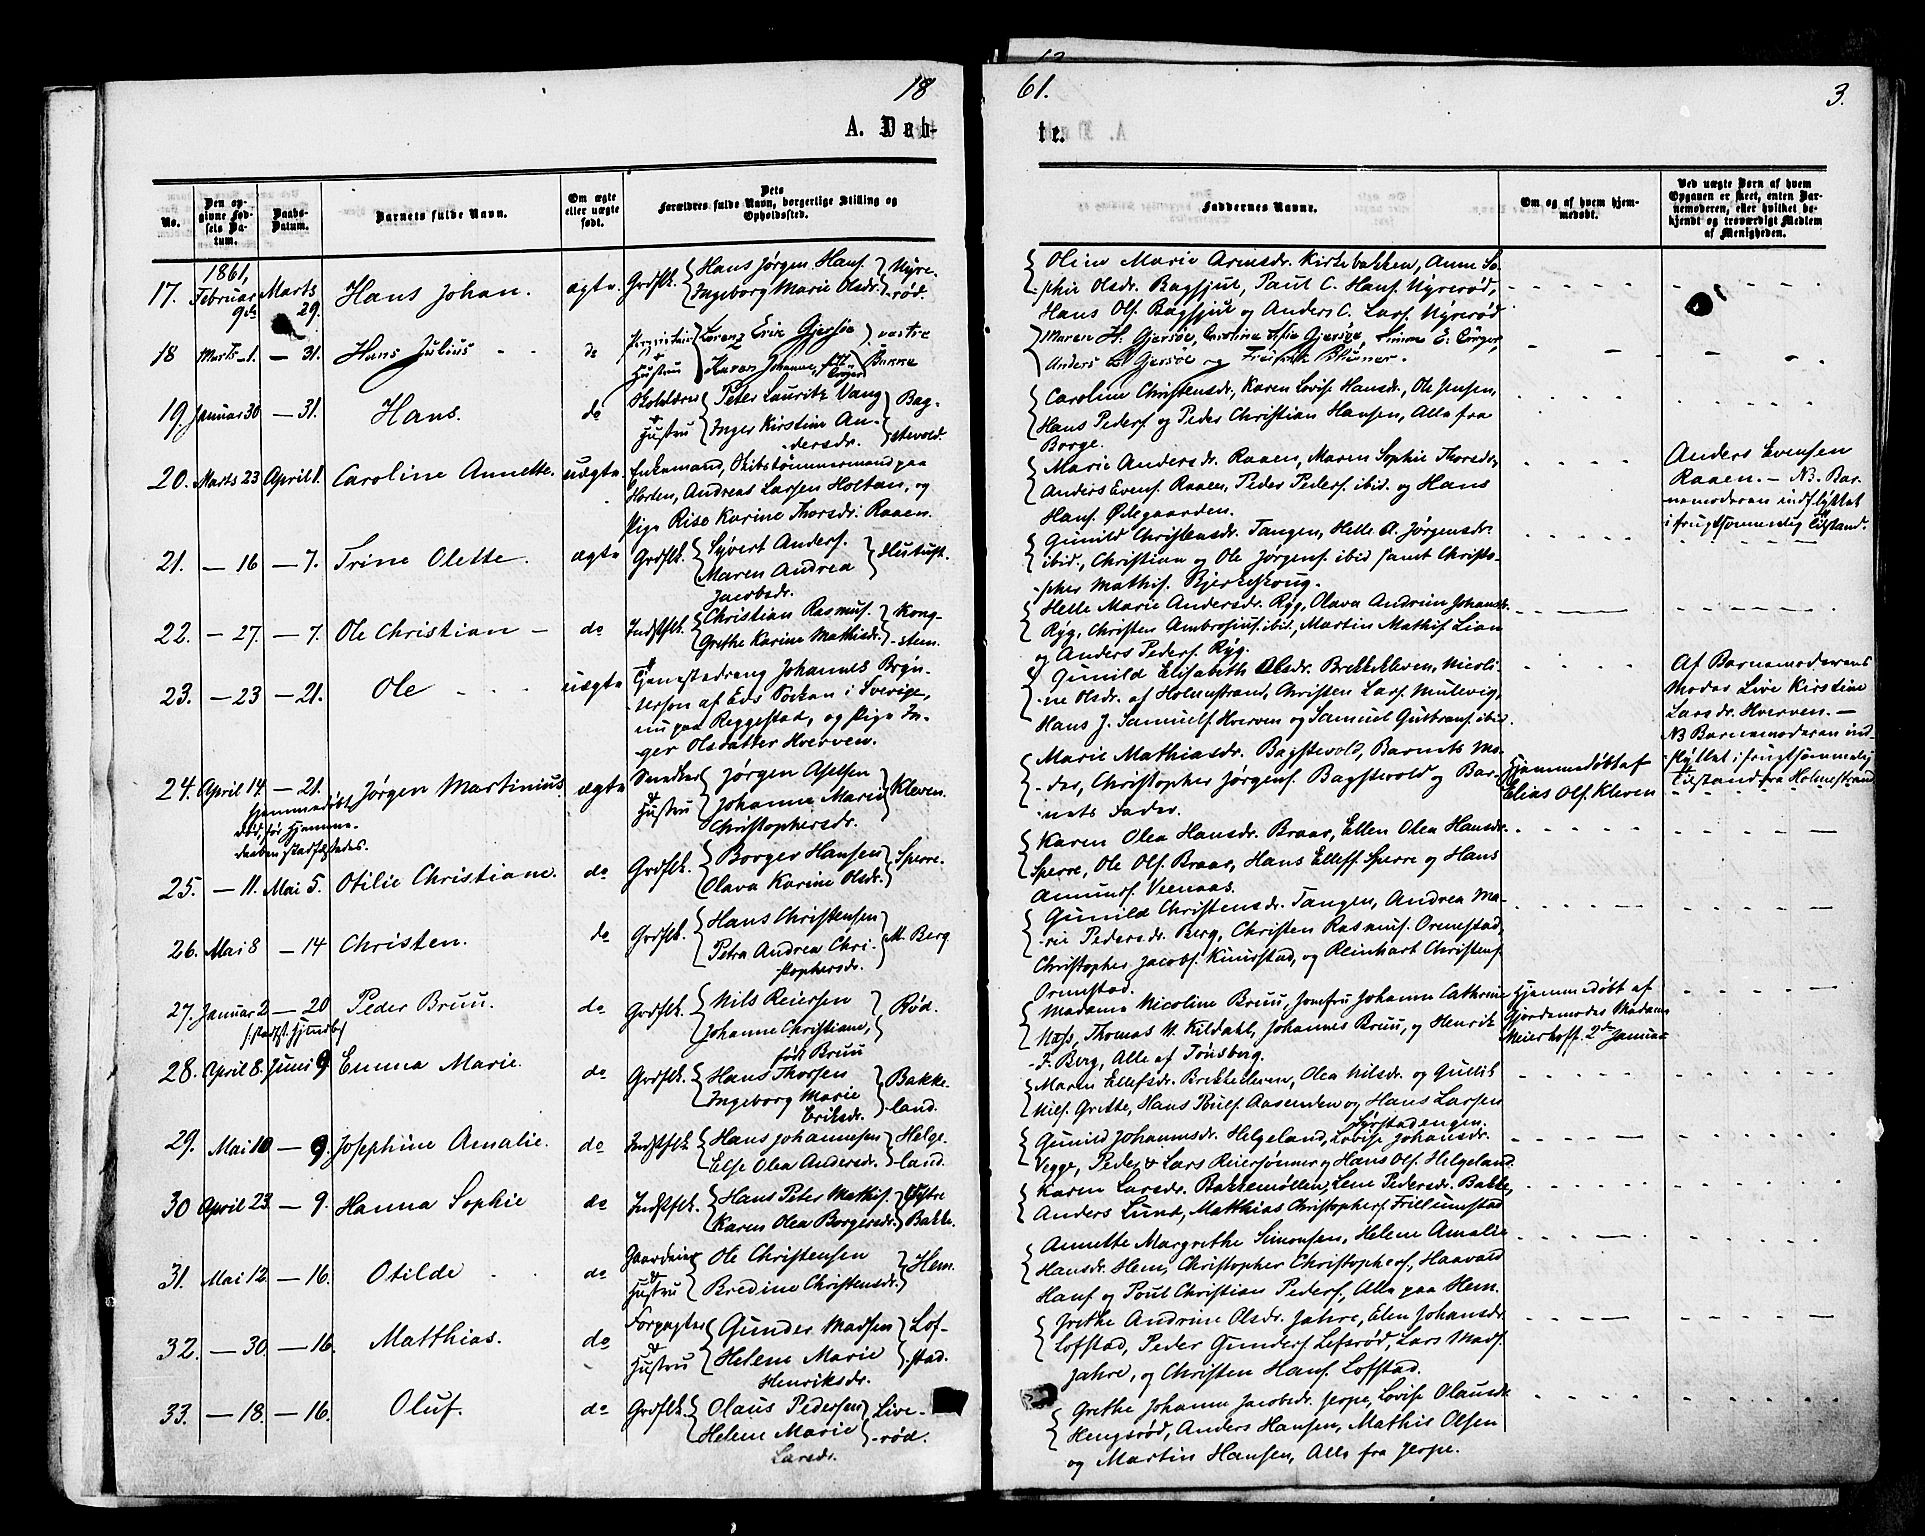 18
61.
3.
A. Døb-
te.
No.
Den op-
givne Fød-
sels Da-
tum.
Daabs-
Datum.
Barnets fulde Navn.
Om ægte
eller uægte
født.
Dets
Forældres fulde Navn, borgerlige Stilling og
Opholdssted.
Faddernes Navne.
Om og af hvem hjem-
medøbt.
Ved uægte Børn af hvem
Opgaven er skeet, enten Bar-
nemoderen, eller hvilket be-
kjendt og troværdigt Medlem
af Menigheden.
1861,
17. Februar 9de Marts 29. Hans Johan. ægte. Grdflk. Hans Jørgen Hans.
Ingeborg Marie Olsdr. Nyre-
rød.
Oline Marie Arnesdr. Kirkebakken, Anne So-
phie Olsdr. Bagsjul, Paul C. Hans. Nyrerød,
Hans Ols. Bagsjul og Anders C. Lars. Nyrerød
18 Marts 1. — 31. Hans Julius do
Hustru Lorenz Eric Gjersøe
Karen Johanne, født Cröger vestre
Bakke
Maren H. Gjersøe, Caroline Sofie Gjersøe, Simine E. Cröger,
Anders Gjersøe og
19. Januar 30 — 31. Hans. do Skolelærer
Hustru Peter Lauritz Vang
Inger Kirstine An-
dersdr. Bag-
stevold.
Caroline Christensdr., Karen Lovise Hansdr., Ole Jensen,
Hans Peders. og Peder Christian Hansen, Alle fra
Borge.
20. Marts 23 April 1. Caroline Annette. uægte. Enkemand, Skibstømmermand paa
Horten, Andreas Larsen Holtan, og
Pige Rise Karine Thorsdr. Raaen.
Marie Andersdr. Raaen, Maren Sophie Thorsdr.,
Anders Evens. Raaen, Peder Peders. ibid. og Hans
Hans. Ødegaarden.
Anders Evensen
Raaen. — NB. Bar-
nemoderen indflyttet
i frugtsommelig Tilstand.
21. — 16 — 7. Trine Olette. ægte Grdflk. Syvert Anders.
Maren Andrea
Jacobsdr. Slutust.
Gunild Christensdr. Tangen, Helle A. Jørgensdr.
ibid., Christian og Ole Jørgens. ibid samt Christo-
pher Mathis. Bjerkeskoug.
22. — 27. — 7. Ole Christian — do Indstflk. Christian Rasmus.
Grethe Karine Mathisdr. Kong-
stein.
Helle Marie Andersdr. Ryg, Olava Andrine Johansdr.
Ryg, Christen Ambrosius. ibid., Martin Mathis. Lian
og Anders Peders. Ryg.
23. — 23 — 21. Ole uægte Tjenestedreng Johannes Bryn-
terson af Eds Socken i Sverige,
nu paa Reggestad, og Pige In-
ger Olsdatter Hverven.
Gunild Elisabeth Olsdr. Brekkekleven, Nicoli-
ne Olsdr. af Holmestrand, Christen Lars. Mulevig,
Hans J. Samuels. Hverven og Samuel Gutbrans. ibid.
Af Barnemoderens
Moder Live Kirstine
Larsdr. Hverven. —
NB Barnemoderen ind-
flyttet i frugtsommelig
Tilstand fra Holmestrand
24. April 14. — 21. Jørgen Martinius. ægte Snedker
&
Hustru Jørgen Axelsen
Johanne Marie
Christophersdr. Kleven.
hjemmedøbt
død, før Hjemme-
daaben stadfæstedes.
Marie Mathiasdr. Bagstevold, Barnets Mo-
der, Christopher Jørgens. Bagstevold og Bar-
nets Fader.
Hjemmedøbt af
Elias Ols. Kleven
25. — 11. Mai 5. Otilie Christiane. do Grdflk. Borger Hansen
Olava Karine Olsdr. Sperre.
Karen Olea Hansdr. Braar, Ellen Olea Hansdr.
Sperre, Ole Ols. Braar, Hans Ellefs. Sperre og Hans
Amunds. Veenaas.
26. Mai 8 — 14 Christen. do Grdflk. Hans Christensen
Petra Andrea Chri-
stophersdr. M. Berg
Gunild Christensdr. Tangen, Andrea Ma-
rie Pedersdr. Berg, Christen Rasmus. Ormestad,
Christopher Jacobs. Knirstad, og Reinhart Christens.
Ormestad.
27. Januar 2 — 20 Peder Bruu. do Grdflk. Nils Reiersen
Johanne Christiane,
født Bruu Rød.
(stadf. hjmdb)
Madame Nicoline Bruu, Jomfru Johanne Cathrine
Næss, Thomas W. Kildahl, Johannes Bruu, og Henrik
F. Berg, Alle af Tønsberg.
Hjemmedøbt af
Gjordemoder Madame
Meierhoff 2de Januar
28. April 8. Juni 9. Emma Marie. do Grdflk. Hans Thorsen
Ingeborg Marie
Eriksdr. Bakke-
land.
Maren Ellefsdr. Brekkekleven, Olea Nilsdr. og Gullik
Nils. Grette, Hans Pouls. Aasenden og Hans Larsen
Fyrstadengen.
29. Mai 10 — 9. Josephine Amalie. do Indstflk. Hans Johannesen
Else Olea Andersdr. Helge-
land.
Gunild Johannsdr. Helgeland, Lovise Johansdr.
Vegge, Peder & Lars Reiersønner og Hans Ols. Helgeland.
30 April 23. — 9. Hanna Sophie do Indstflk. Hans Peter Mathis.
Karen Olea Borgersdr. Østre
Bakke.
Karen Larsdr. Bakkemøllen, Lene Pedersdr. Bakke,
Anders Lund, Matthias Christophers. Frillumstad
31. Mai 12 — 16. Otilde do Gaardeier
&
Hustru Ole Christensen
Bredine Christensdr. Hem.
Annette Margrethe Simonsen, Helene Amalie
Hansdr. Hem, Christopher Christophers., Haavald
Hans. og Poul Christian Peders., Alle paa Hem.
32. — 30. — 16. Matthias. do Forpagter
&
Hustru Gunder Madsen
Helene Marie
Henriksdr. Lof-
stad.
Grethe Andrine Olsdr. Jahre, Elen Johansdr.
Lofstad, Peder Gunders. Lefsrød, Lars Mads.
Jahre, og Christen Hans. Lofstad.
33. — 18. — 16. Oluf. do Grdflk. Olaus Pedersen
Helene Marie
Larsdr. Live-
rød.
Grethe Johanne Jacobsdr. Jerpe, Lovise Olausdr.
Hengsrød, Anders Hansen, Mathis Olsen
og Martin Hansen, Alle fra Jerpe.